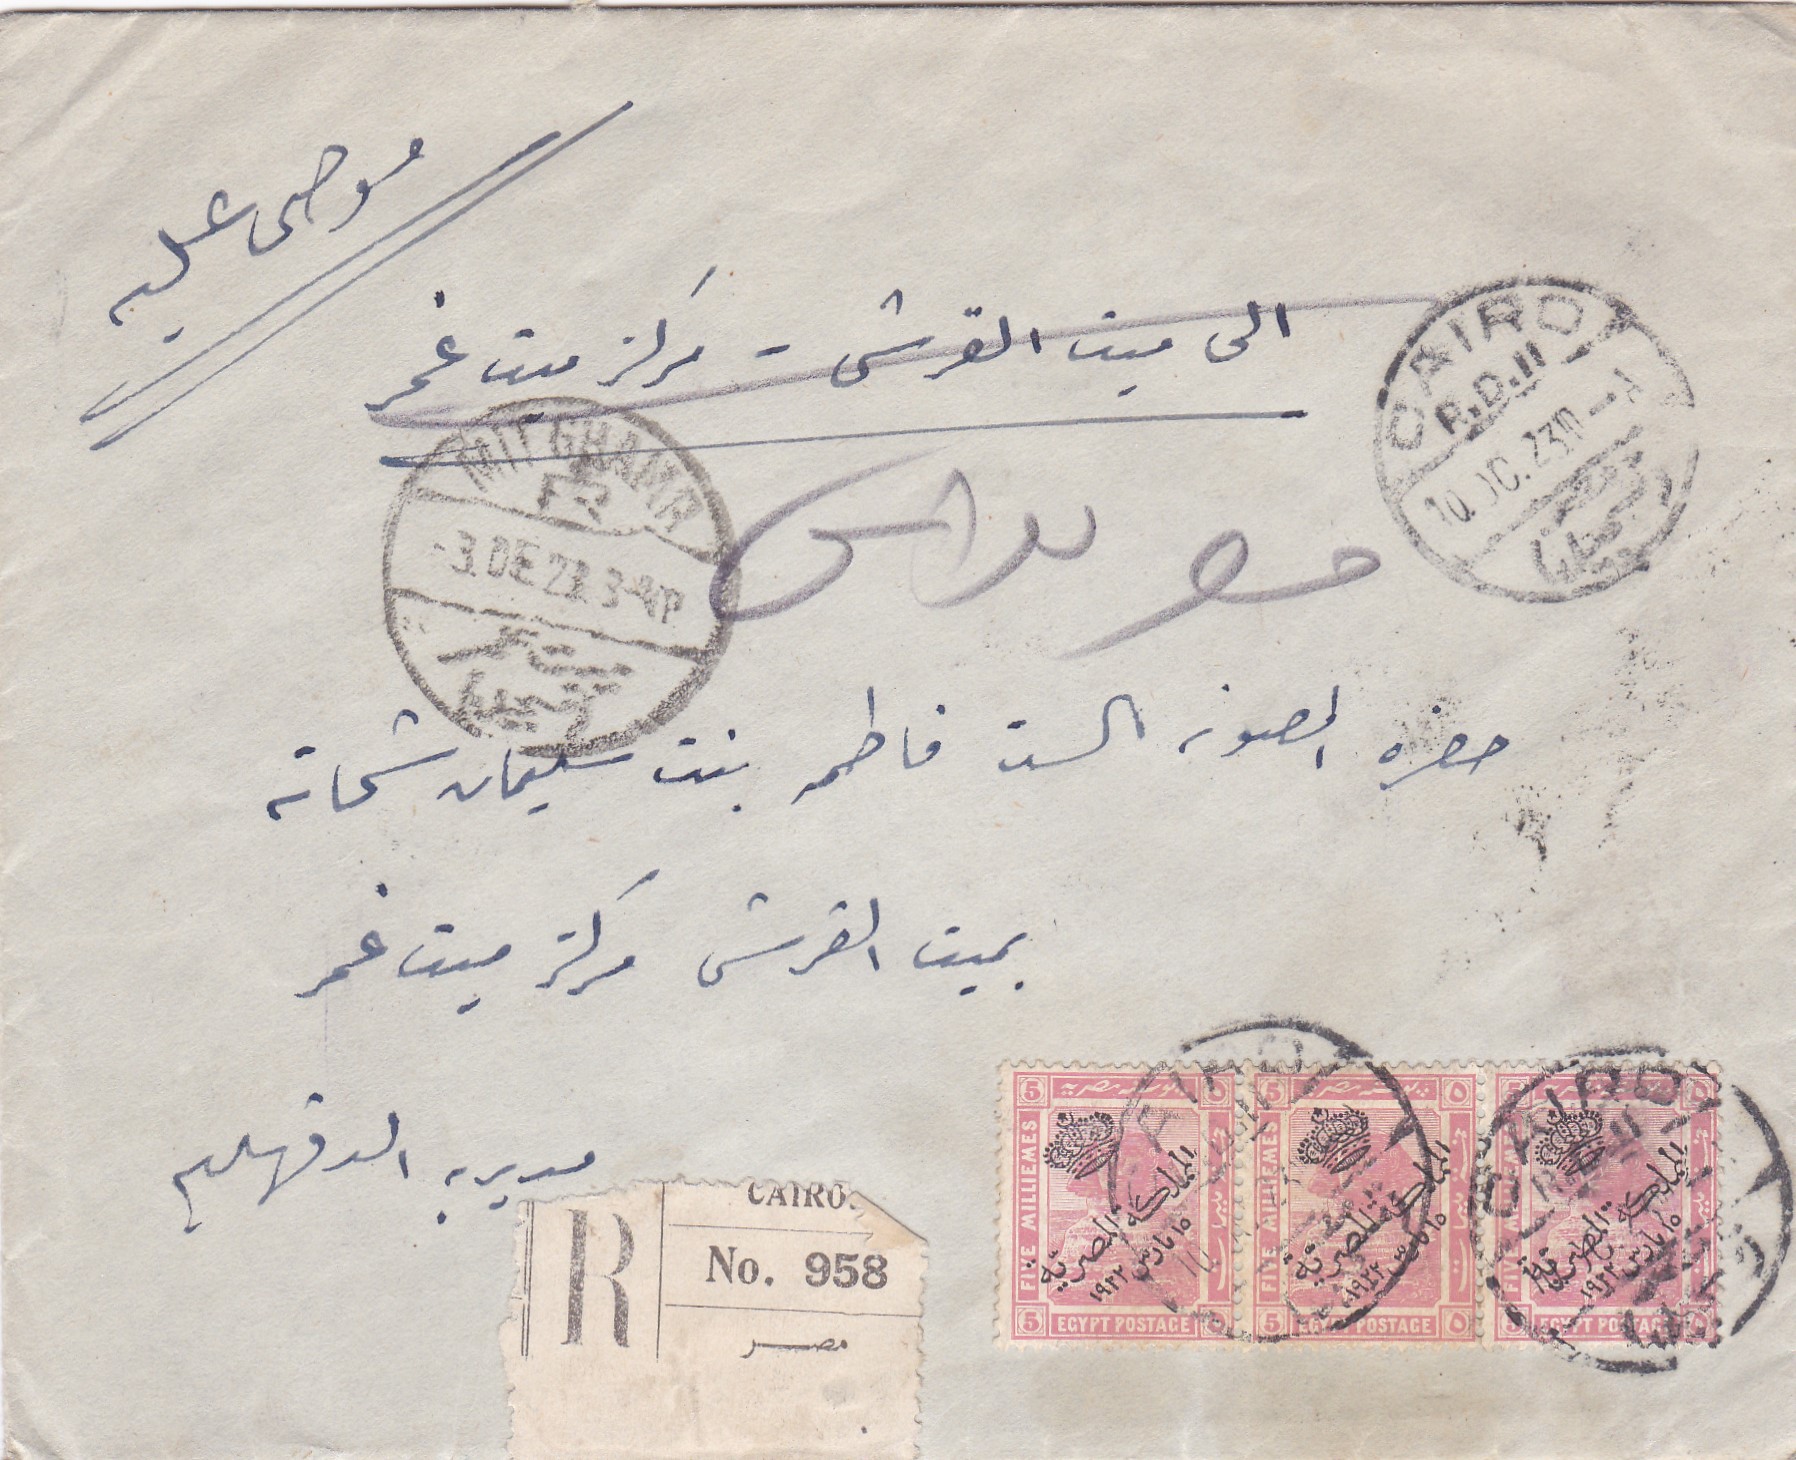 موصى عليه
الى ميت القرشى - مركز ميت غمر
CAIRO
R.D.II
10. OC. 23 10 -
MIT GHAMR
- 3. DE. 23. 3-4 P
حضرة المصونه الست فاطمه بنت سليمان شحاته
بميت القرشى مركز ميت غمر
مديرية الدقهليه
R
CAIRO.
No. 958
مصر
5 ٥
FIVE MILLIEMES
المملكة المصرية
١٥ مارس ١٩٢٢
5 EGYPT POSTAGE ٥
5 ٥
FIVE MILLIEMES
المملكة المصرية
١٥ مارس ١٩٢٢
5 EGYPT POSTAGE ٥
5 ٥
FIVE MILLIEMES
المملكة المصرية
١٥ مارس ١٩٢٢
5 EGYPT POSTAGE ٥
CAIRO
CAIRO